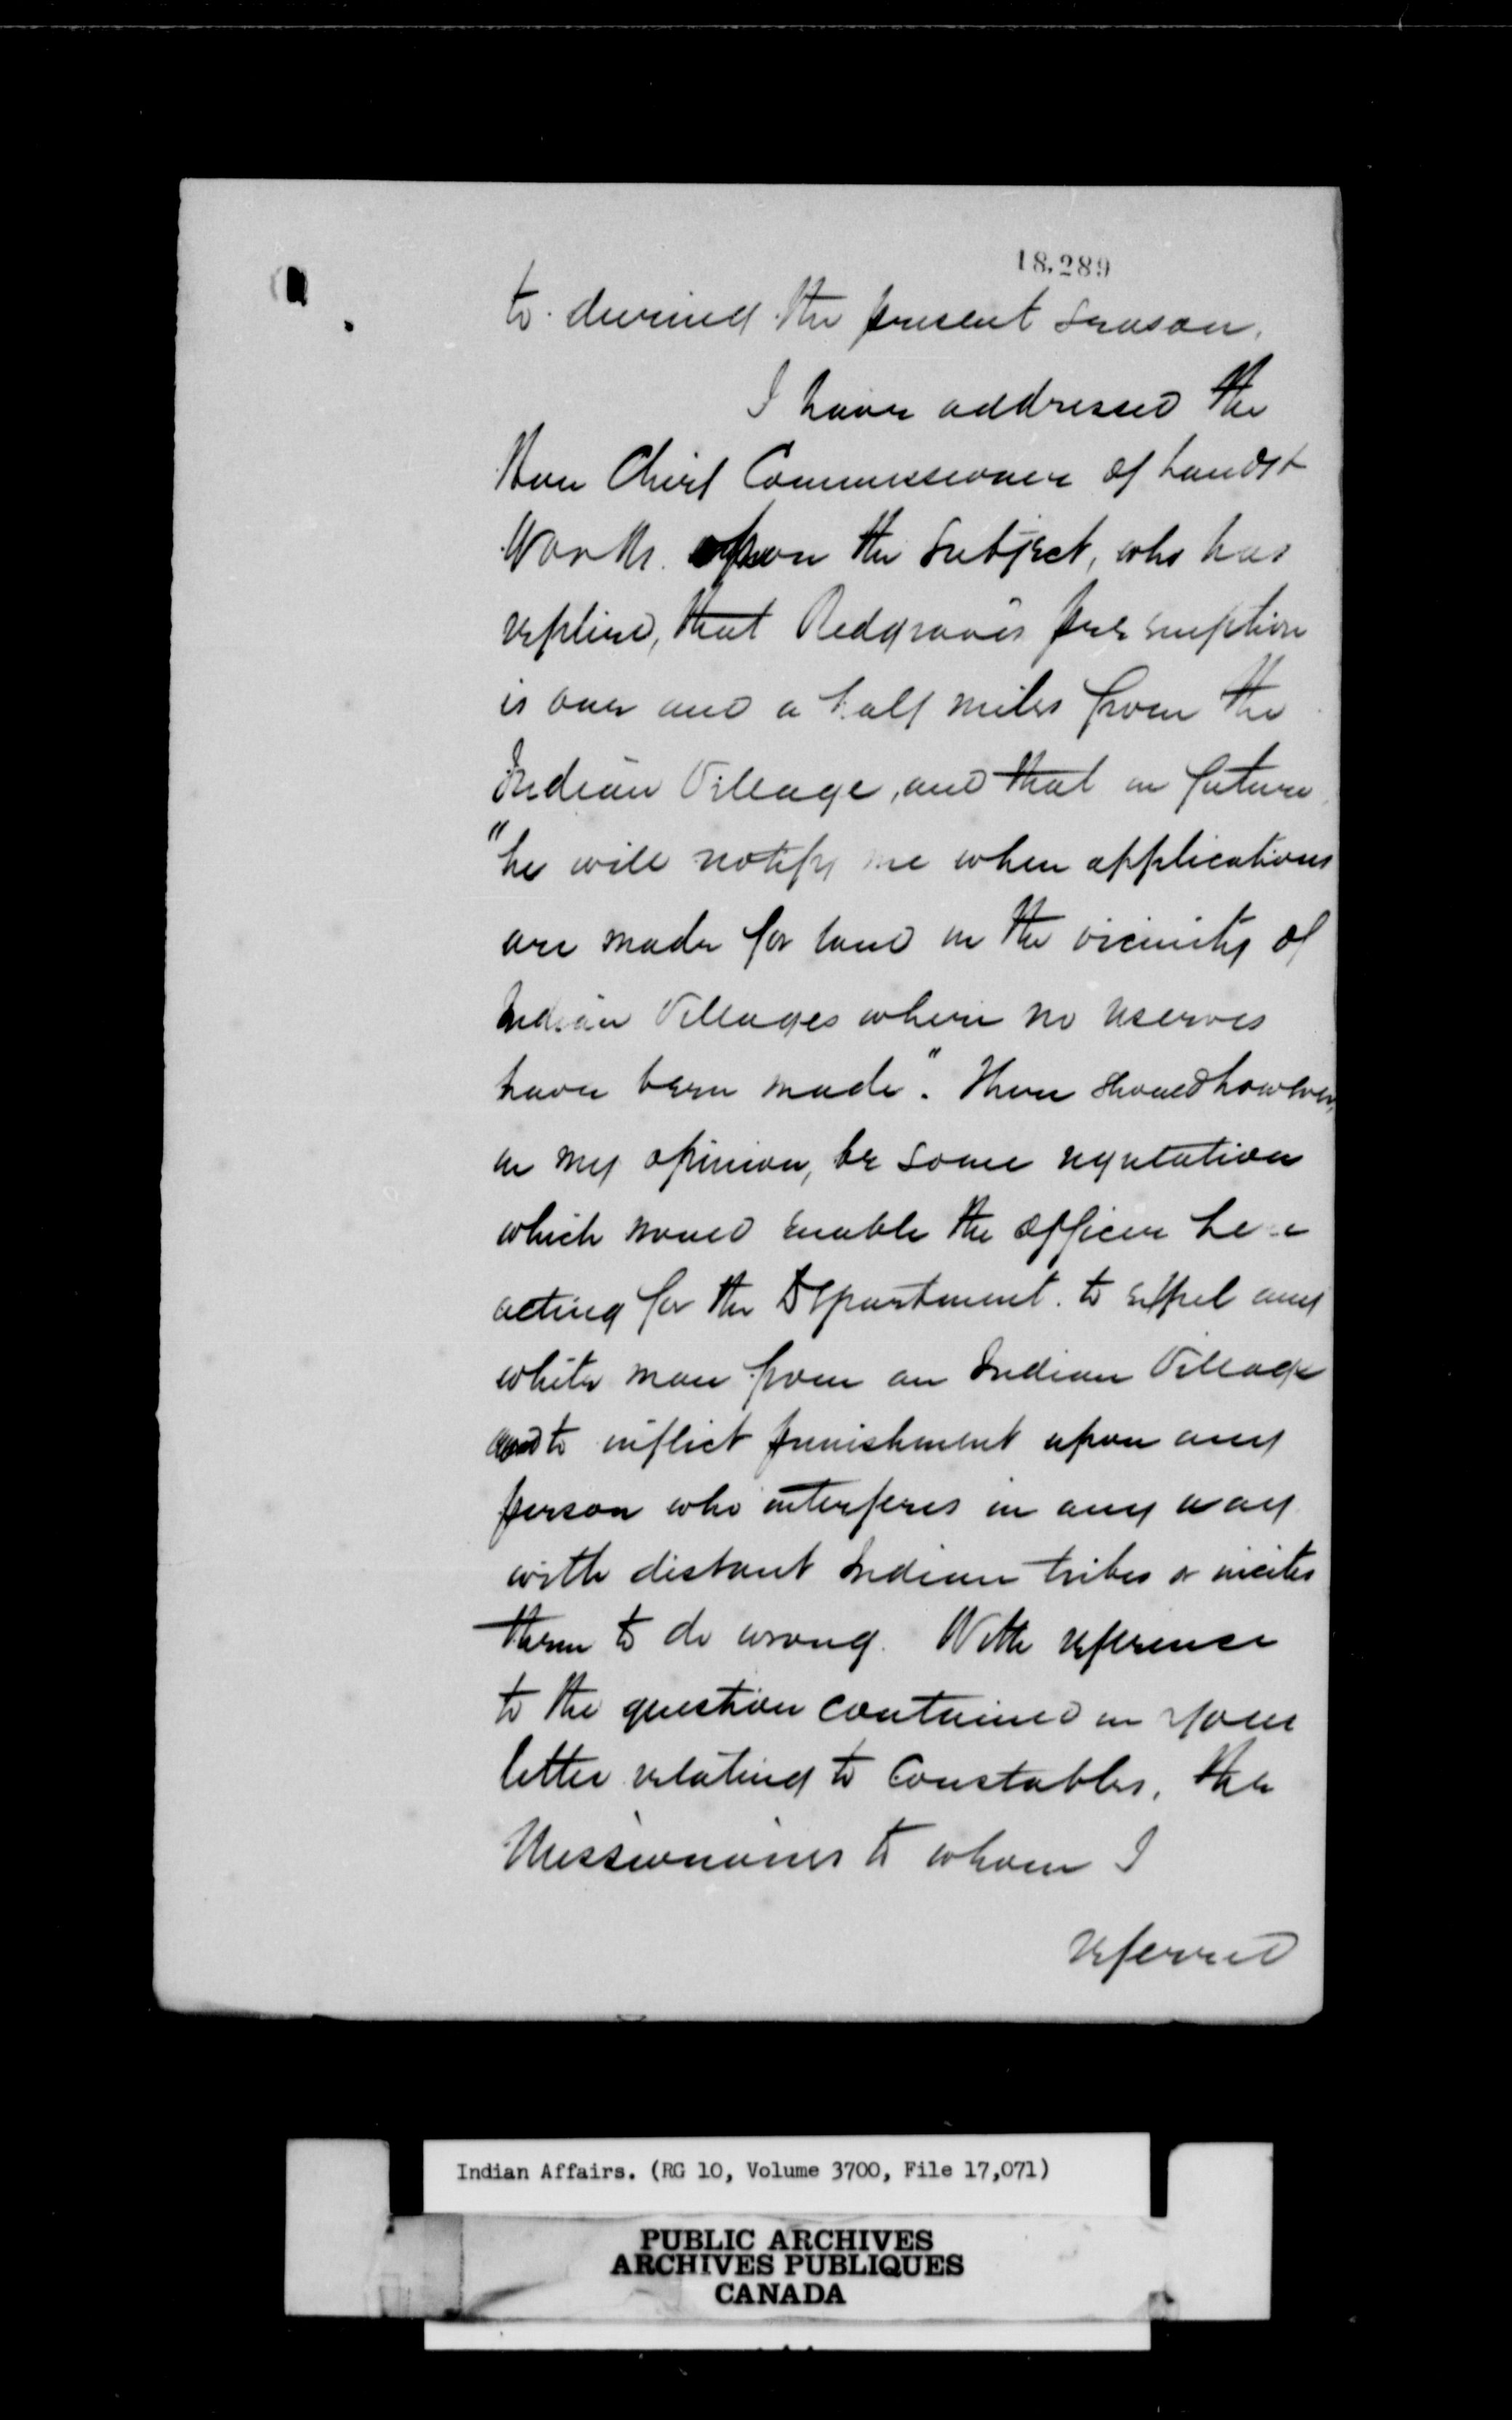 18,289
to during the present season.
I have addressed the
Hon Chief Commissioner of Lands &
Works upon the subject, who has
replied, that Redgrave's pre emption
is one and a half miles from the
Indian Village, and that in future
"he will notify me when applications
are made for land in the vicinity of
Indian Villages where no reserves
have been made". There should however,
in my opinion, be some regulation
which would enable the officer here
acting for the Department. to expel any
white man from an Indian Village
and to inflict punishment upon any
person who interferes in any way
with distant Indian tribes or incites
them to do wrong. With reference
to the question contained in your
letter relating to Constables, the
Missionaries to whom I
referred
Indian Affairs. (RG 10, Volume 3700, File 17,071)
PUBLIC ARCHIVES
ARCHIVES PUBLIQUES
CANADA